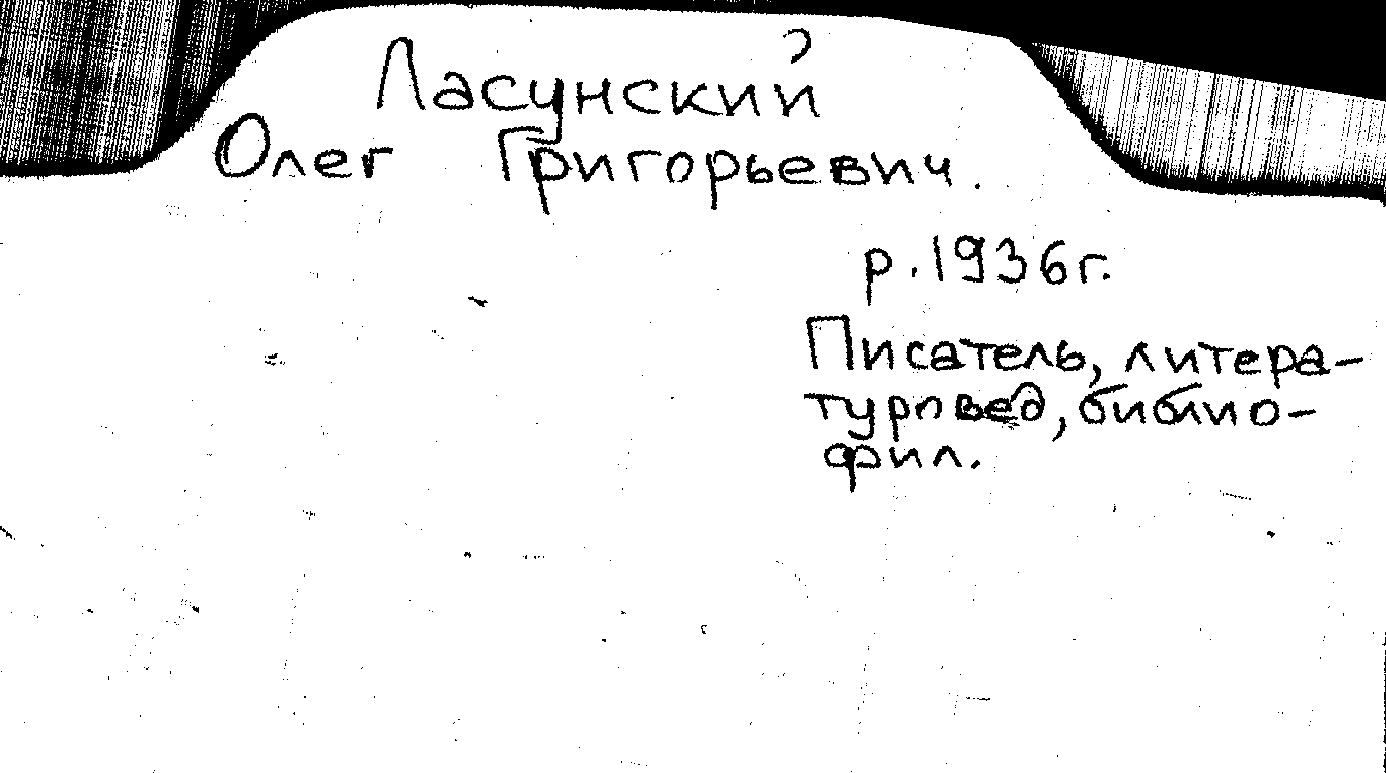 Ласунский
Олег Григорьевич.
р. 1936г.
Писатель, литера-
туровед, библио-
фил.